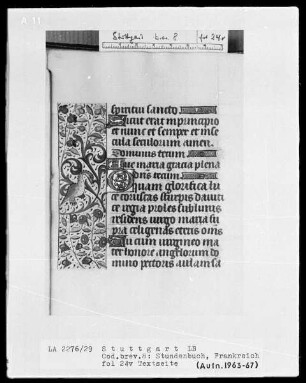 A 11
Stuttgart brev. 8 fol 24v
spiritui sancto
Sicut erat in principio
et nunc et semper et in se
cula seculorum amen.
Dominus tecum
Aue maria gracia plena
dns tecum
O quam glorifica lu
ce coruscas stirpis dauiti
ce regia proles sublimis
residens uirgo maria su
pra celigenas etheris omis
Tu cum uirgineo ma
ter honore angelorum do
mino pectoris aulam sa
LA 2276/29 Stuttgart LB
Cod.brev.8: Stundenbuch, Frankreich
fol 24v Textseite
(Aufn.1963-67)